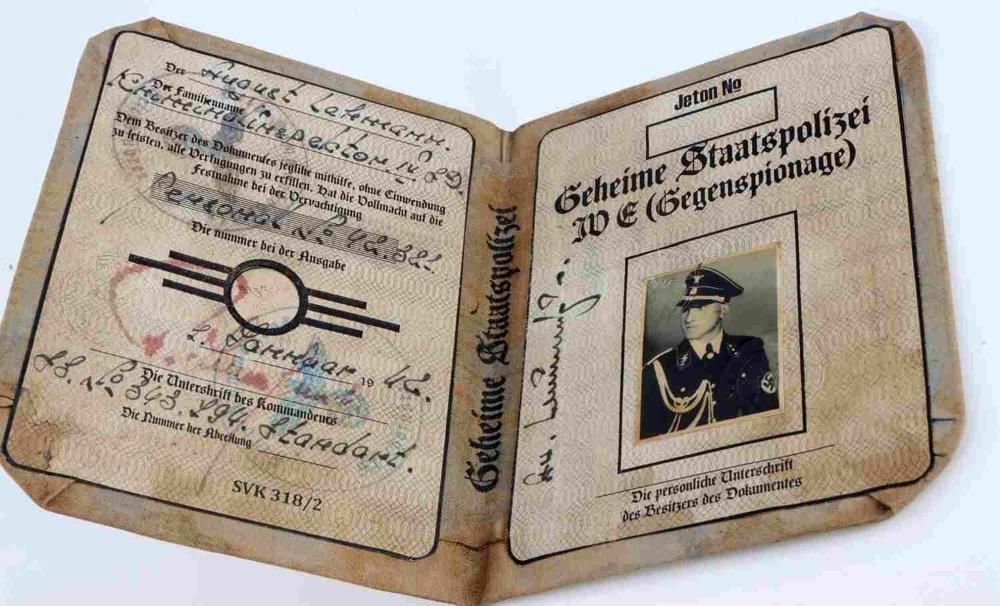 Der August Lehmann.
Der Familienname
Kriminalinspektor IV
Dem Besitzer des Dokumentes jeglihe mithilfe, ohne Einwendung
zu leisten, alle Verfugungen zu erfillen. Hat die Vollmacht auf die
Festnahme bei der Vervachtigung
Personal No 42.32.
Die nummer bei der Ausgabe
2. Januar 19 42.
Die Untershrift des Kommandeurs
No 343. 294. Standart.
Die Nummer der Abteilung
SVK 318/2
Geheime Staatspolizei
Jeton No
Geheime Staatspolizei
IV E (Gegenspionage)
Die personliche Unterschrift
des Besitzers des Dokumentes